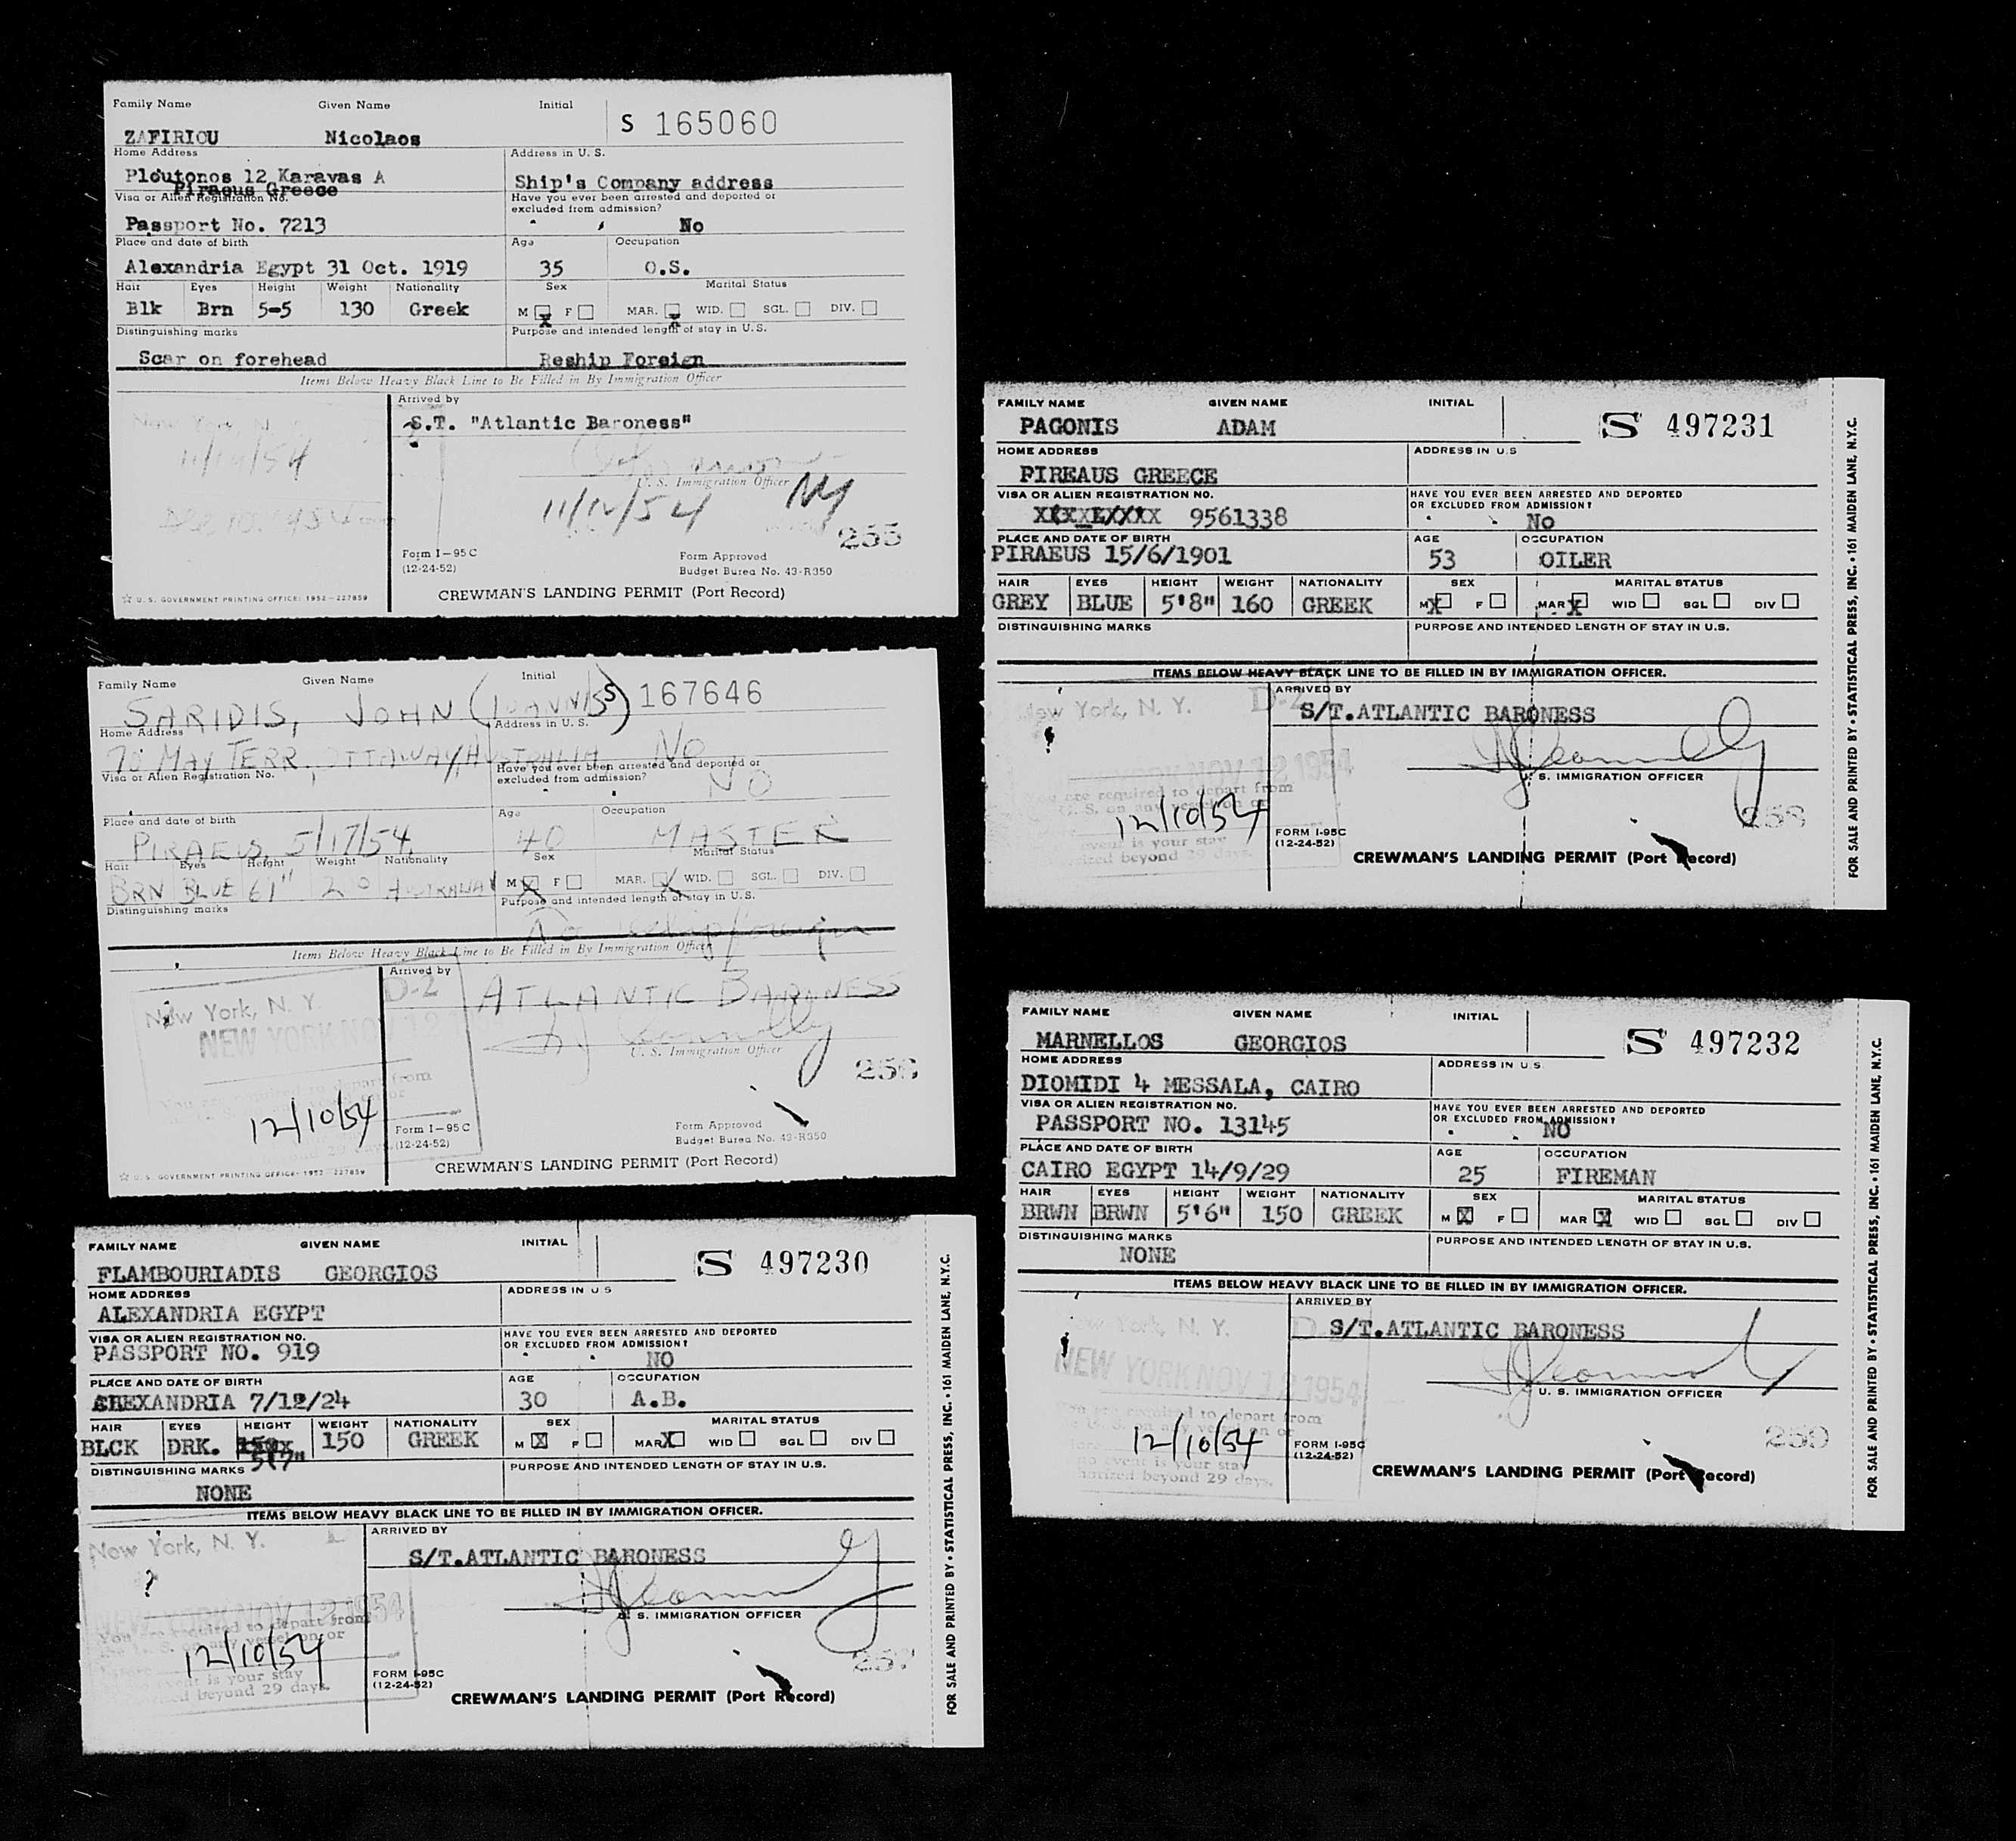 Family Name Given Name Initial
S 165060
ZAFIRIOU Nicolaos
Home Address Address in U. S.
Ploutonos 12 Karavas A
Piraeus Greece
Ship's Company address
Visa or Alien Registration No. Have you ever been arrested and deported or
excluded from admission?
Passport No. 7213 No
Place and date of birth Age Occupation
Alexandria Egypt 31 Oct. 1919 35 O.S.
Hair Eyes Height Weight Nationality Sex Marital Status
Blk Brn 5-5 130 Greek M X F MAR. X WID. SGL. DIV.
Distinguishing marks Purpose and intended length of stay in U.S.
Scar on forehead Reship Foreign
Items Below Heavy Black Line to Be Filled in By Immigration Officer
Arrived by
S.T. "Atlantic Baroness"
New York, N
U. S. Immigration Officer
NY
11/12/54
255
Form I-95C
(12-24-52)
Form Approved
Budget Burea No. 43-R350
☆ U. S. GOVERNMENT PRINTING OFFICE: 1952-227859
CREWMAN'S LANDING PERMIT (Port Record)
Family Name Given Name Initial
S 167646
SARIDIS, JOHN (IOANNIS)
Home Address Address in U. S.
70 MAY TERR, OTTAWAY/AUSTRALIA No
Visa or Alien Registration No. Have you ever been arrested and deported or
excluded from admission?
NO
Place and date of birth Age Occupation
PIRAEUS, 5/17/54 40 MASTER
Hair Eyes Height Weight Nationality Sex Marital Status
BRN BLUE 61" M X F MAR. X WID. SGL. DIV.
Distinguishing marks Purpose and intended length of stay in U.S.
Reship foreign
Items Below Heavy Black Line to Be Filled in By Immigration Officer
Arrived by
D-2
ATLANTIC BARONESS
New York, N. Y.
NEW YORK NOV 12
U. S. Immigration Officer
256
12/10/54
Form I-95C
(12-24-52)
Form Approved
Budget Burea No. 43-R350
☆ U. S. GOVERNMENT PRINTING OFFICE: 1952-227859
CREWMAN'S LANDING PERMIT (Port Record)
FAMILY NAME GIVEN NAME INITIAL
S 497230
FLAMBOURIADIS GEORGIOS
HOME ADDRESS ADDRESS IN U S
ALEXANDRIA EGYPT
VISA OR ALIEN REGISTRATION NO. HAVE YOU EVER BEEN ARRESTED AND DEPORTED
OR EXCLUDED FROM ADMISSION?
PASSPORT NO. 919 NO
PLACE AND DATE OF BIRTH AGE OCCUPATION
ALEXANDRIA 7/12/24 30 A.B.
HAIR EYES HEIGHT WEIGHT NATIONALITY SEX MARITAL STATUS
BLCK DRK. 5'7" 150 GREEK M X F MAR X WID SGL DIV
DISTINGUISHING MARKS PURPOSE AND INTENDED LENGTH OF STAY IN U.S.
NONE
ITEMS BELOW HEAVY BLACK LINE TO BE FILLED IN BY IMMIGRATION OFFICER.
ARRIVED BY
New York, N. Y.
S/T.ATLANTIC BARONESS
NEW YORK NOV 12 1954
U. S. IMMIGRATION OFFICER
You are required to depart from
12/10/54
event is your stay
beyond 29 days.
257
FORM I-95C
(12-24-52)
CREWMAN'S LANDING PERMIT (Port Record)
FOR SALE AND PRINTED BY • STATISTICAL PRESS, INC. • 161 MAIDEN LANE, N.Y.C.
FAMILY NAME GIVEN NAME INITIAL
S 497231
PAGONIS ADAM
HOME ADDRESS ADDRESS IN U.S
PIREAUS GREECE
VISA OR ALIEN REGISTRATION NO. HAVE YOU EVER BEEN ARRESTED AND DEPORTED
OR EXCLUDED FROM ADMISSION?
9561338 No
PLACE AND DATE OF BIRTH AGE OCCUPATION
PIRAEUS 15/6/1901 53 OILER
HAIR EYES HEIGHT WEIGHT NATIONALITY SEX MARITAL STATUS
GREY BLUE 5'8" 160 GREEK M X F MAR X WID SGL DIV
DISTINGUISHING MARKS PURPOSE AND INTENDED LENGTH OF STAY IN U.S.
ITEMS BELOW HEAVY BLACK LINE TO BE FILLED IN BY IMMIGRATION OFFICER.
ARRIVED BY
New York, N. Y. D-2
S/T.ATLANTIC BARONESS
NOV 12 1954
U. S. IMMIGRATION OFFICER
You are required to depart from
U. S. on any vessel on or
12/10/54
event is your stay
beyond 29 days.
258
FORM I-95C
(12-24-52)
CREWMAN'S LANDING PERMIT (Port Record)
FOR SALE AND PRINTED BY • STATISTICAL PRESS, INC. • 161 MAIDEN LANE, N.Y.C.
FAMILY NAME GIVEN NAME INITIAL
S 497232
MARNELLOS GEORGIOS
HOME ADDRESS ADDRESS IN U.S
DIOMIDI 4 MESSALA, CAIRO
VISA OR ALIEN REGISTRATION NO. HAVE YOU EVER BEEN ARRESTED AND DEPORTED
OR EXCLUDED FROM ADMISSION?
PASSPORT NO. 13145 NO
PLACE AND DATE OF BIRTH AGE OCCUPATION
CAIRO EGYPT 14/9/29 25 FIREMAN
HAIR EYES HEIGHT WEIGHT NATIONALITY SEX MARITAL STATUS
BRWN BRWN 5'6" 150 GREEK M X F MAR X WID SGL DIV
DISTINGUISHING MARKS PURPOSE AND INTENDED LENGTH OF STAY IN U.S.
NONE
ITEMS BELOW HEAVY BLACK LINE TO BE FILLED IN BY IMMIGRATION OFFICER.
ARRIVED BY
New York, N. Y. D
S/T.ATLANTIC BARONESS
NEW YORK NOV 12 1954
U. S. IMMIGRATION OFFICER
required to depart from
12/10/54
no event is your stay
beyond 29 days.
259
FORM I-95C
(12-24-52)
CREWMAN'S LANDING PERMIT (Port Record)
FOR SALE AND PRINTED BY • STATISTICAL PRESS, INC. • 161 MAIDEN LANE, N.Y.C.